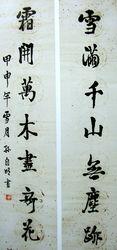 雪满千山無塵跡
霜開萬木盡新花
甲申年雪月孫自明書